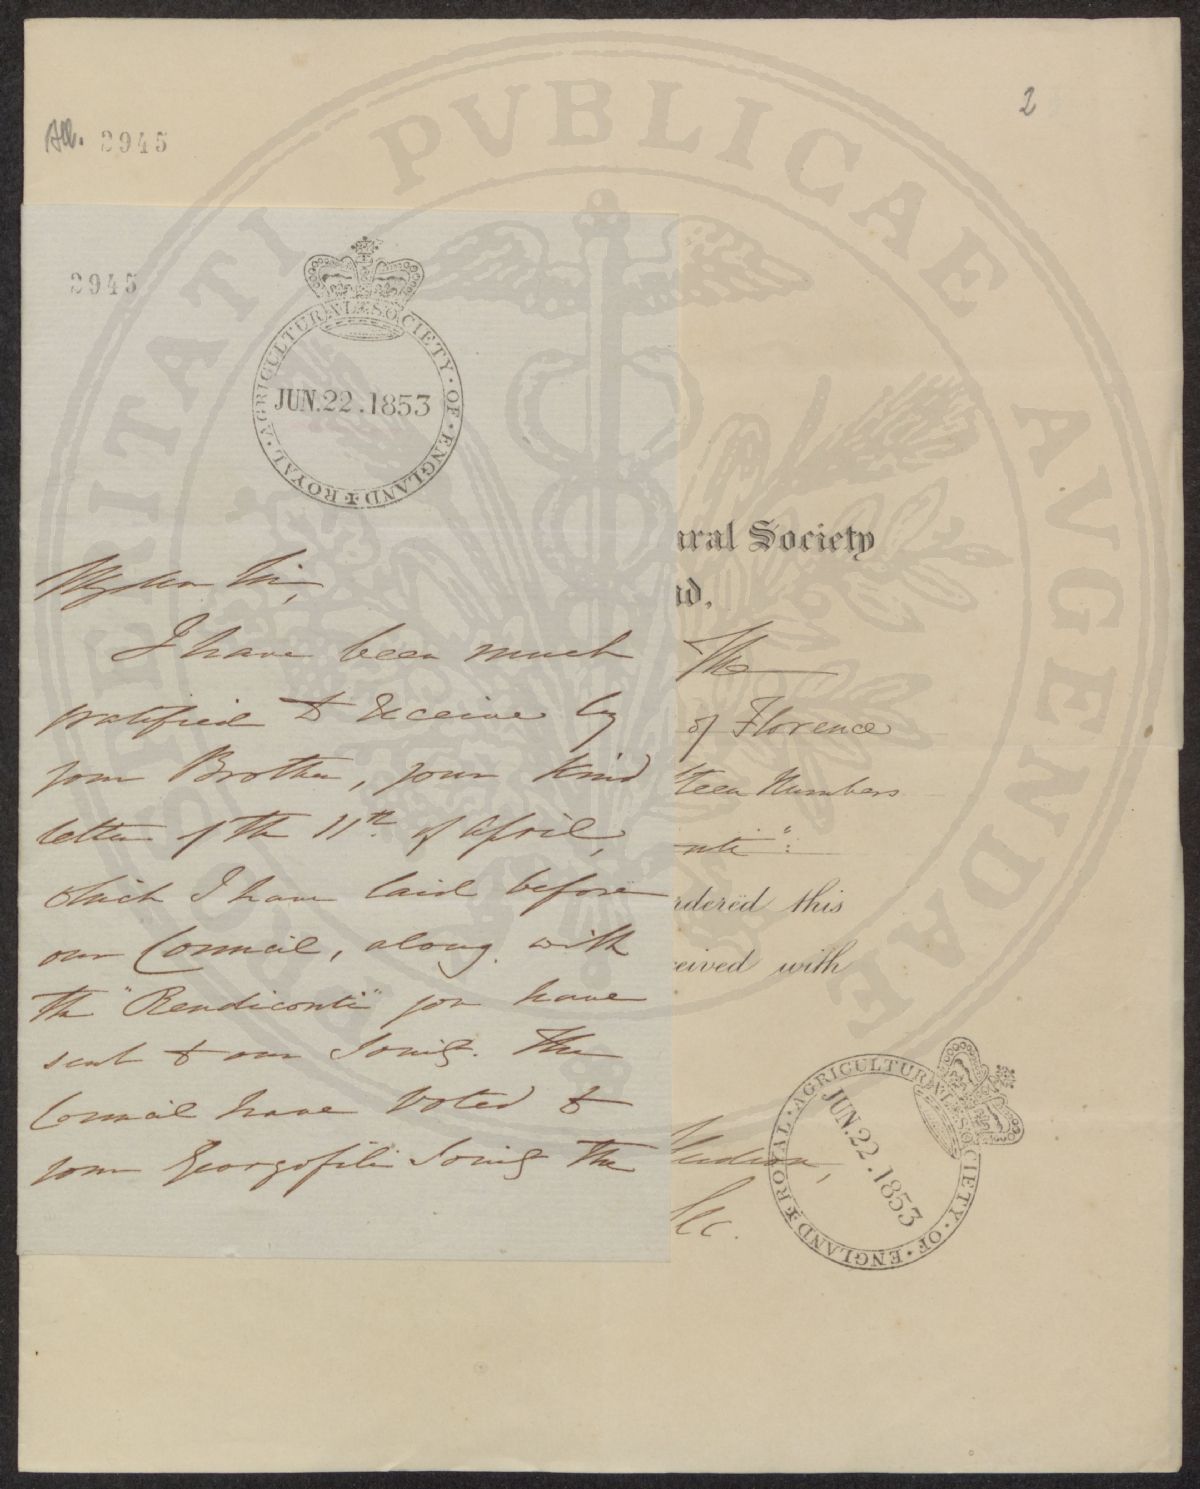 2
All. 2945
PROSPERITATI PVBLICAE AVGENDAE
2945
ROYAL · AGRICULTURAL SOCIETY · OF · ENGLAND
JUN. 22 . 1853
My dear Sir,
I have been much
gratified to receive by
your Brother, your kind
letter of the 11th. of April,
which I have laid before
our Council, along with
the "Rendiconti" you have
sent to our Society. The
Council have voted to
your Georgofili Society the
ural Society
nd,
The
of Florence
teen Numbers
nti":
rdered this
ceived with
Hudson,
Sec.
ROYAL · AGRICULTURAL SOCIETY · OF · ENGLAND
JUN. 22 . 1853